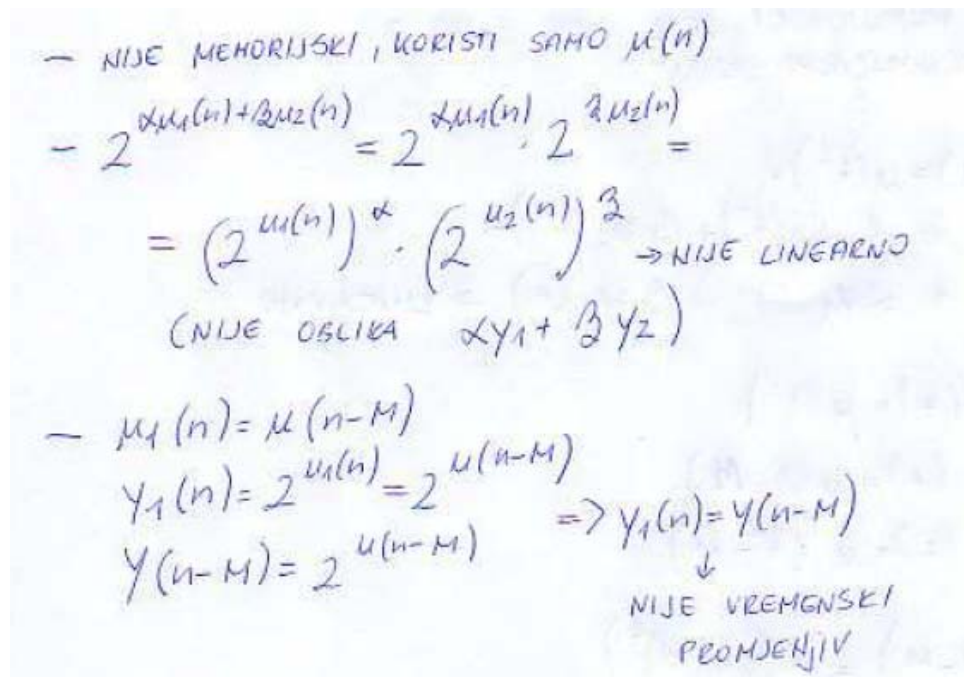 - NIJE MEMORIJSKI, KORISTI SAMO u(n)
- 2^{αu1(n)+βu2(n)} = 2^{αu1(n)} · 2^{βu2(n)} =
= (2^{u1(n)})^α · (2^{u2(n)})^β → NIJE LINEARNO
(NIJE OBLIKA αy1 + βy2)
- u1(n) = u(n-M)
y1(n) = 2^{u1(n)} = 2^{u(n-M)}
y(n-M) = 2^{u(n-M)} => y1(n) = y(n-M)
↓
NIJE VREMENSKI
PROMJENjIV